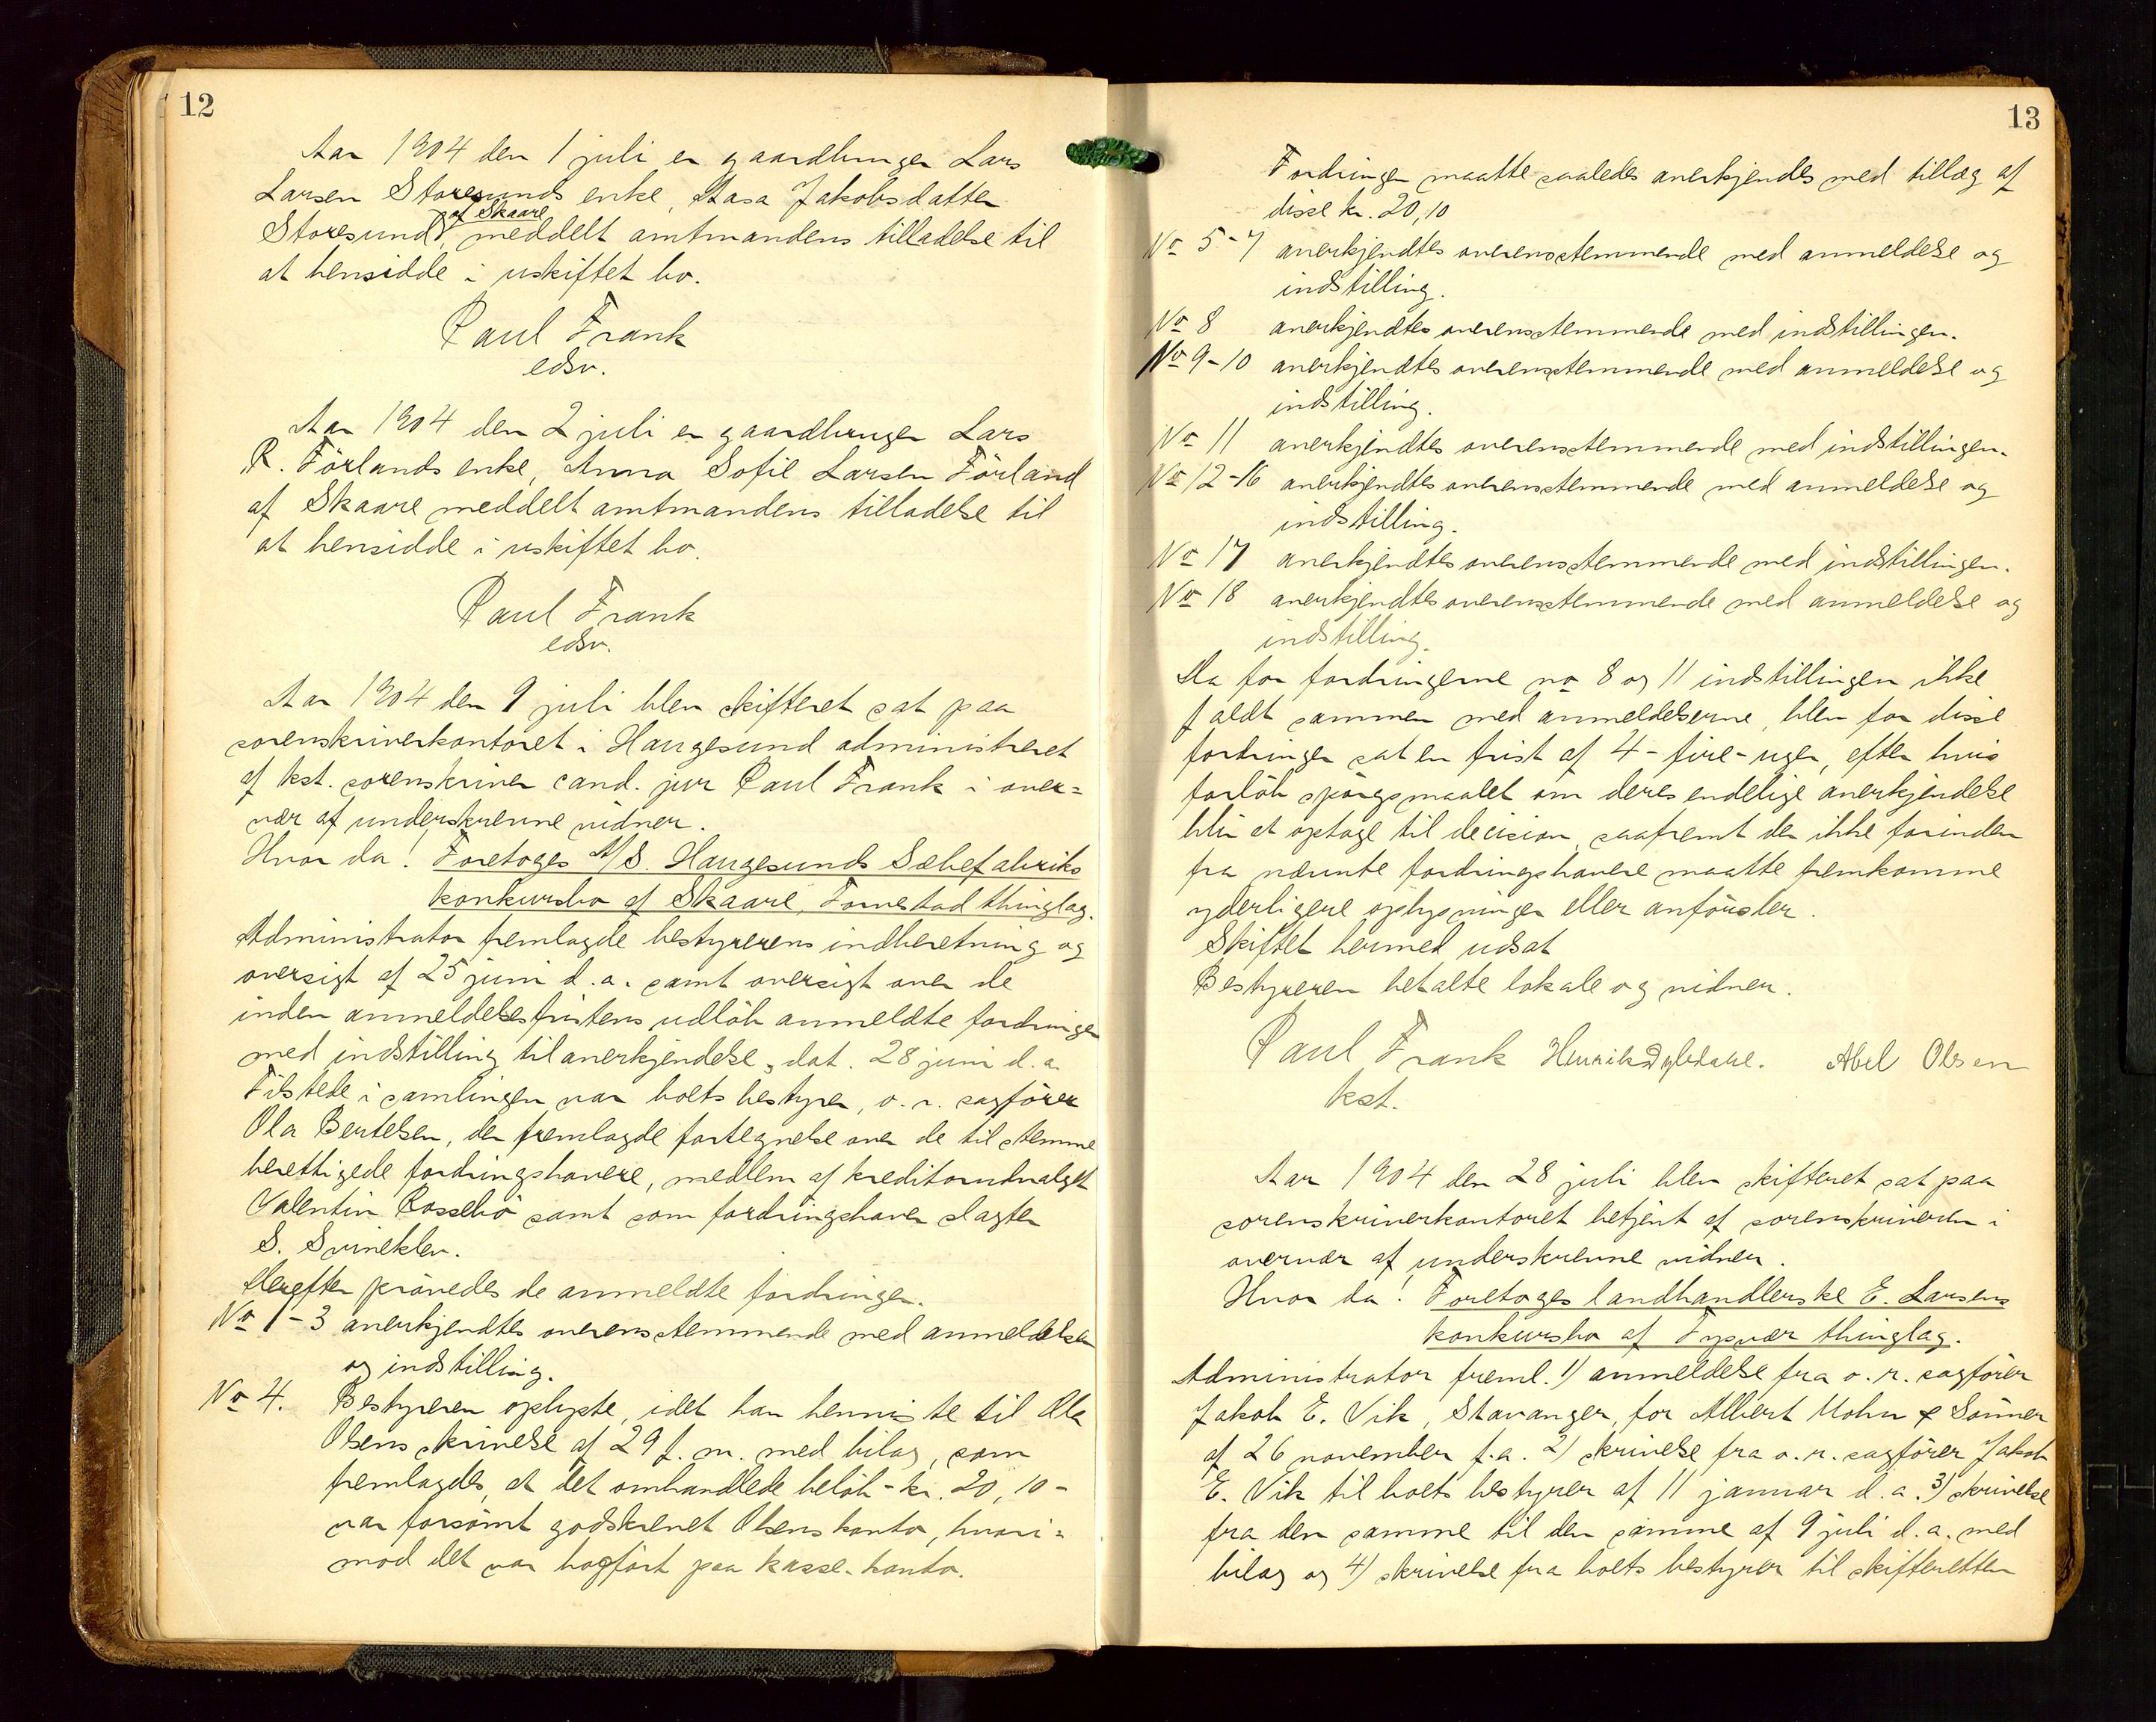 12
Aar 1904 den 1 juli er gaardbruger Lars
Larsen Storesunds enke, Aasa Jakobsdatter
af Skaare
Storesund, meddelt amtmandens tilladelse til
at hensidde i uskiftet bo.
Paul Frank
edsv.
Aar 1904 den 2 juli er gaardbruger Lars
R. Förlands enke, Anna Sofie Larsen Förland
af Skaare meddelt amtmandens tilladelse til
at hensidde i uskiftet bo.
Paul Frank
edsv.
Aar 1904 den 9 juli blev skifteret sat paa
sorenskriverkontoret i Haugesund administreret
af kst. sorenskriver cand. jur Paul Frank i over=
vær af underskrevne vidner.
Hvor da! Foretoges A/S. Haugesunds Sæbefabriks
konkursbo af Skaare, thinglag.
Administrator fremlagde bestyrerens indberetning og
oversigt af 25 juni d.a. samt oversigt over de
inden anmeldelsesfristens udlöb anmeldte fordringer
med indstilling til anerkjendelse, dat. 28 juni d.a.
Tilstede i samlingen var boets bestyrer, o.r. sagförer
Ola Bertelsen, der fremlagde fortegnelse over de til stemme
berettigede fordringshavere, medlem af kreditorudvalget
Valentin Rossebö samt som fordringshaver slagter
S. Svineklev.
Derefter prövedes de anmeldte fordringer.
No 1-3 anerkjendtes overensstemmende med anmeldelse
og indstilling.
No 4. Bestyreren oplyste, idet han henviste til Ola
Olsens skrivelse af 29 f.m. med bilag, som
fremlagdes, at det omhandlede belöb - kr. 20,10 -
var forsömt godskrevet Olsens konto, hvori=
mod det var bogfört paa kasse-konto.
13
Fordringen maatte saaledes anerkjendes med tillæg af
disse kr. 20,10
No 5-7 anerkjendtes overensstemmende med anmeldelse og
indstilling.
No 8 anerkjendtes overensstemmende med indstillingen.
No 9-10 anerkjendtes overensstemmende med anmeldelse og
indstilling.
No 11 anerkjendtes overensstemmende med indstillingen.
No 12-16 anerkjendtes overensstemmende med anmeldelse og
indstilling.
No 17 anerkjendtes overensstemmende med indstillingen.
No 18 anerkjendtes overensstemmende med anmeldelse og
indstilling.
Da for fordringerne no 8 og 11 indstillingen ikke
faldt sammen med anmeldelserne, blev for disse
fordringer sat en frist af 4 - fire - uger, efter hvis
forlöb spörgsmaalet om deres endelige anerkjendelse
blir at optage til decision, saafremt der ikke forinden
fra nævnte fordringshavere maatte fremkomme
yderligere oplysninger eller anförsler.
Skiftet hermed udsat
Bestyreren betalte lokale og vidner.
Paul Frank Henrik Abel Olsen
kst.
Aar 1904 den 28 juli blev skifteret sat paa
sorenskriverkontoret betjent af sorenskriveren i
overvær af underskrevne vidner.
Hvor da! Foretoges landhandlerske E. Larsens
konkursbo af Tysvær thinglag.
Administrator freml. 1) anmeldelse fra o.r. sagförer
Jakob E. Vik, Stavanger, for Albert Mohn & Sönner
af 26 november f.a. 2) skrivelse fra o.r. sagförer Jakob
E. Vik til boets bestyrer af 11 januar d.a. 3) skrivelse
fra den samme til den samme af 9 juli d.a. med
bilag og 4) skrivelse fra boets bestyrer til skifteretten